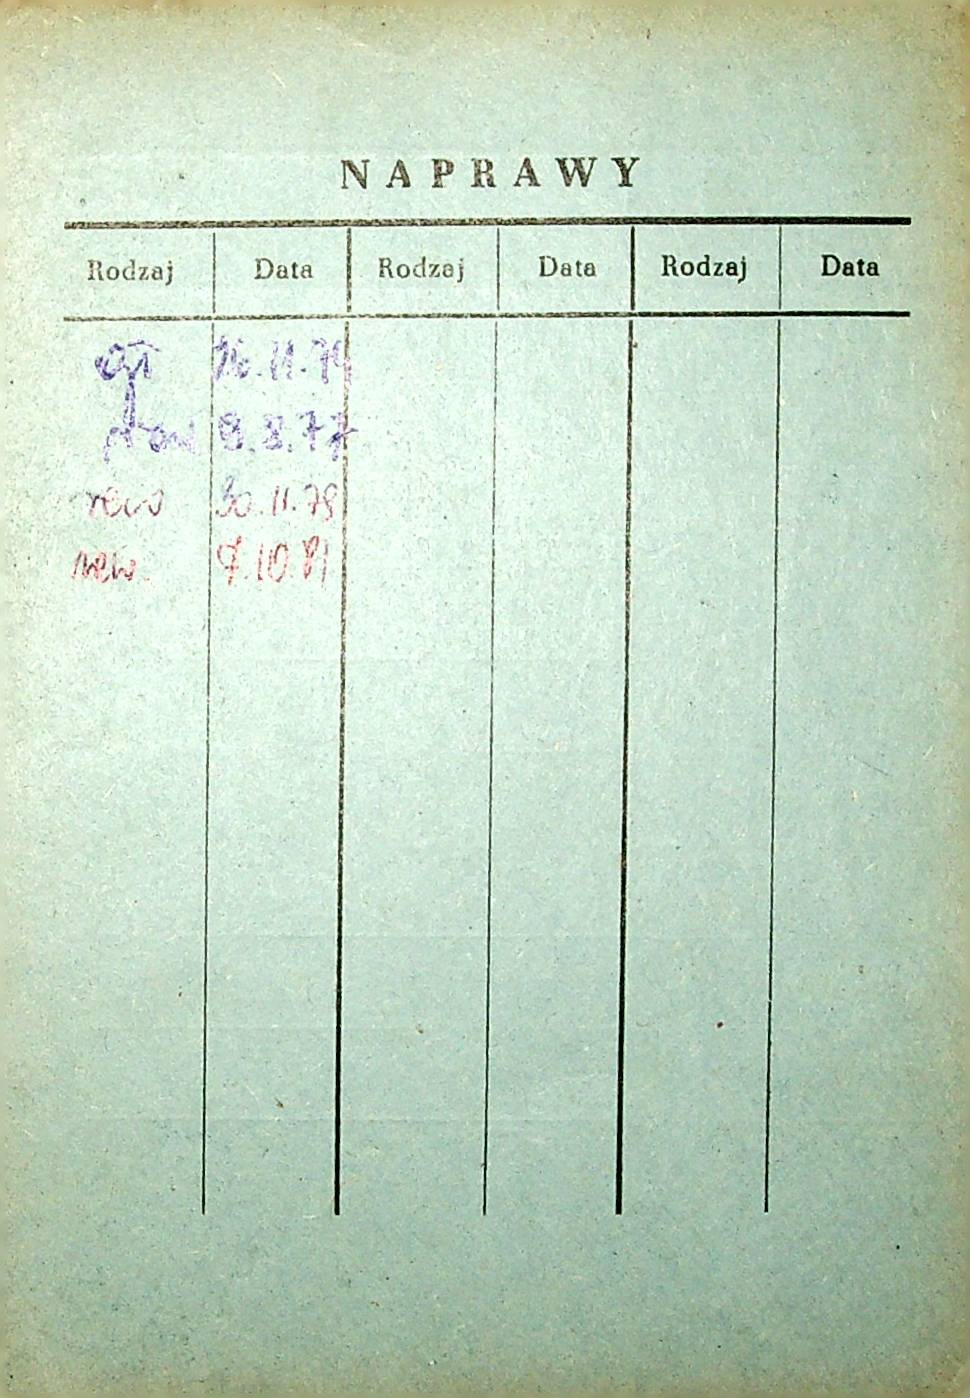 NAPRAWY
Rodzaj Data Rodzaj Data Rodzaj Data
8.8.77
rew 30.11.79
rew. 7.10.81